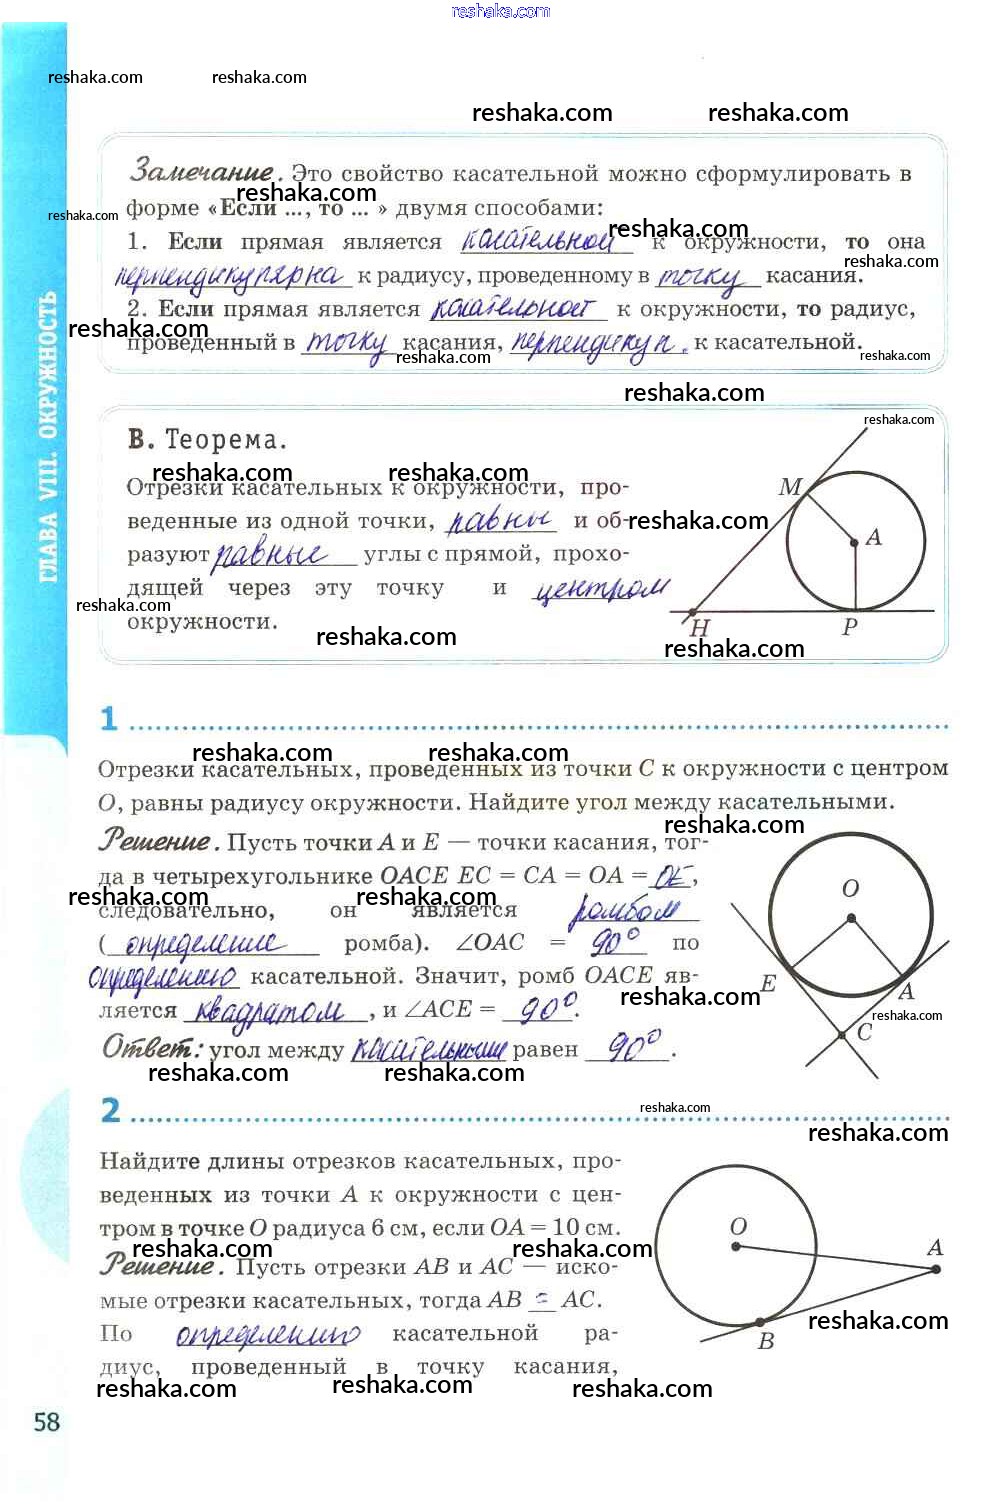 reshaka.com
reshaka.com reshaka.com
reshaka.com reshaka.com
Замечание. Это свойство касательной можно сформулировать в
reshaka.com
форме «Если ..., то ... » двумя способами:
reshaka.com
reshaka.com
1. Если прямая является касательной к окружности, то она
reshaka.com
перпендикулярна к радиусу, проведенному в точку касания.
2. Если прямая является касательной к окружности, то радиус,
reshaka.com
проведенный в точку касания, перпендикул. к касательной.
reshaka.com reshaka.com
reshaka.com
ГЛАВА VIII. ОКРУЖНОСТЬ
reshaka.com
В. Теорема.
reshaka.com reshaka.com
Отрезки касательных к окружности, про-
веденные из одной точки, равны и об-
reshaka.com
разуют равные углы с прямой, прохо-
дящей через эту точку и центром
reshaka.com
окружности.
reshaka.com reshaka.com
M
A
H P
1
reshaka.com reshaka.com
Отрезки касательных, проведенных из точки C к окружности с центром
O, равны радиусу окружности. Найдите угол между касательными.
reshaka.com
Решение. Пусть точки A и E — точки касания, тог-
да в четырехугольнике OACE EC = CA = OA = OE,
reshaka.com reshaka.com reshaka.com
следовательно, он является ромбом
(определение ромба). ∠OAC = 90° по
определению касательной. Значит, ромб OACE яв-
reshaka.com
ляется квадратом, и ∠ACE = 90°.
reshaka.com
Ответ: угол между касательными равен 90°.
reshaka.com reshaka.com
O
E A
C
2
reshaka.com
reshaka.com
Найдите длины отрезков касательных, про-
веденных из точки A к окружности с цен-
тром в точке O радиуса 6 см, если OA = 10 см.
reshaka.com reshaka.com
Решение. Пусть отрезки AB и AC — иско-
мые отрезки касательных, тогда AB = AC.
reshaka.com
По определению касательной ра-
диус, проведенный в точку касания,
reshaka.com reshaka.com reshaka.com
O
A
B
58